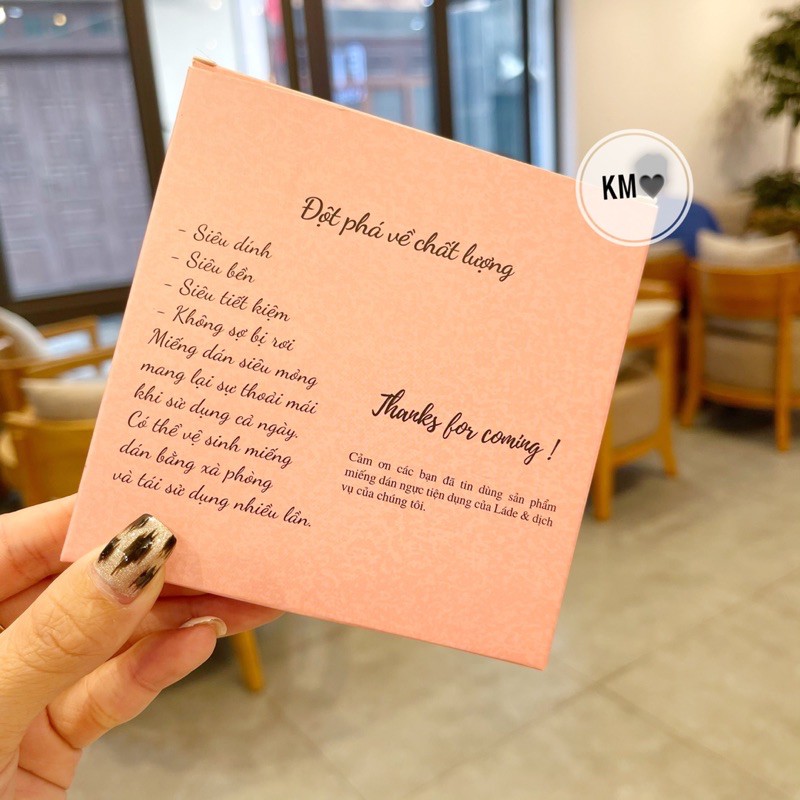 KM🖤
Đột phá về chất lượng
- Siêu dính
- Siêu bền
- Siêu tiết kiệm
- Không sợ bị rơi
Miếng dán siêu mỏng
mang lại sự thoải mái
khi sử dụng cả ngày.
Có thể vệ sinh miếng
dán bằng xà phòng
và tái sử dụng nhiều lần.
Thanks for coming !
Cảm ơn các bạn đã tin dùng sản phẩm
miếng dán ngực tiện dụng của Láde & dịch
vụ của chúng tôi.